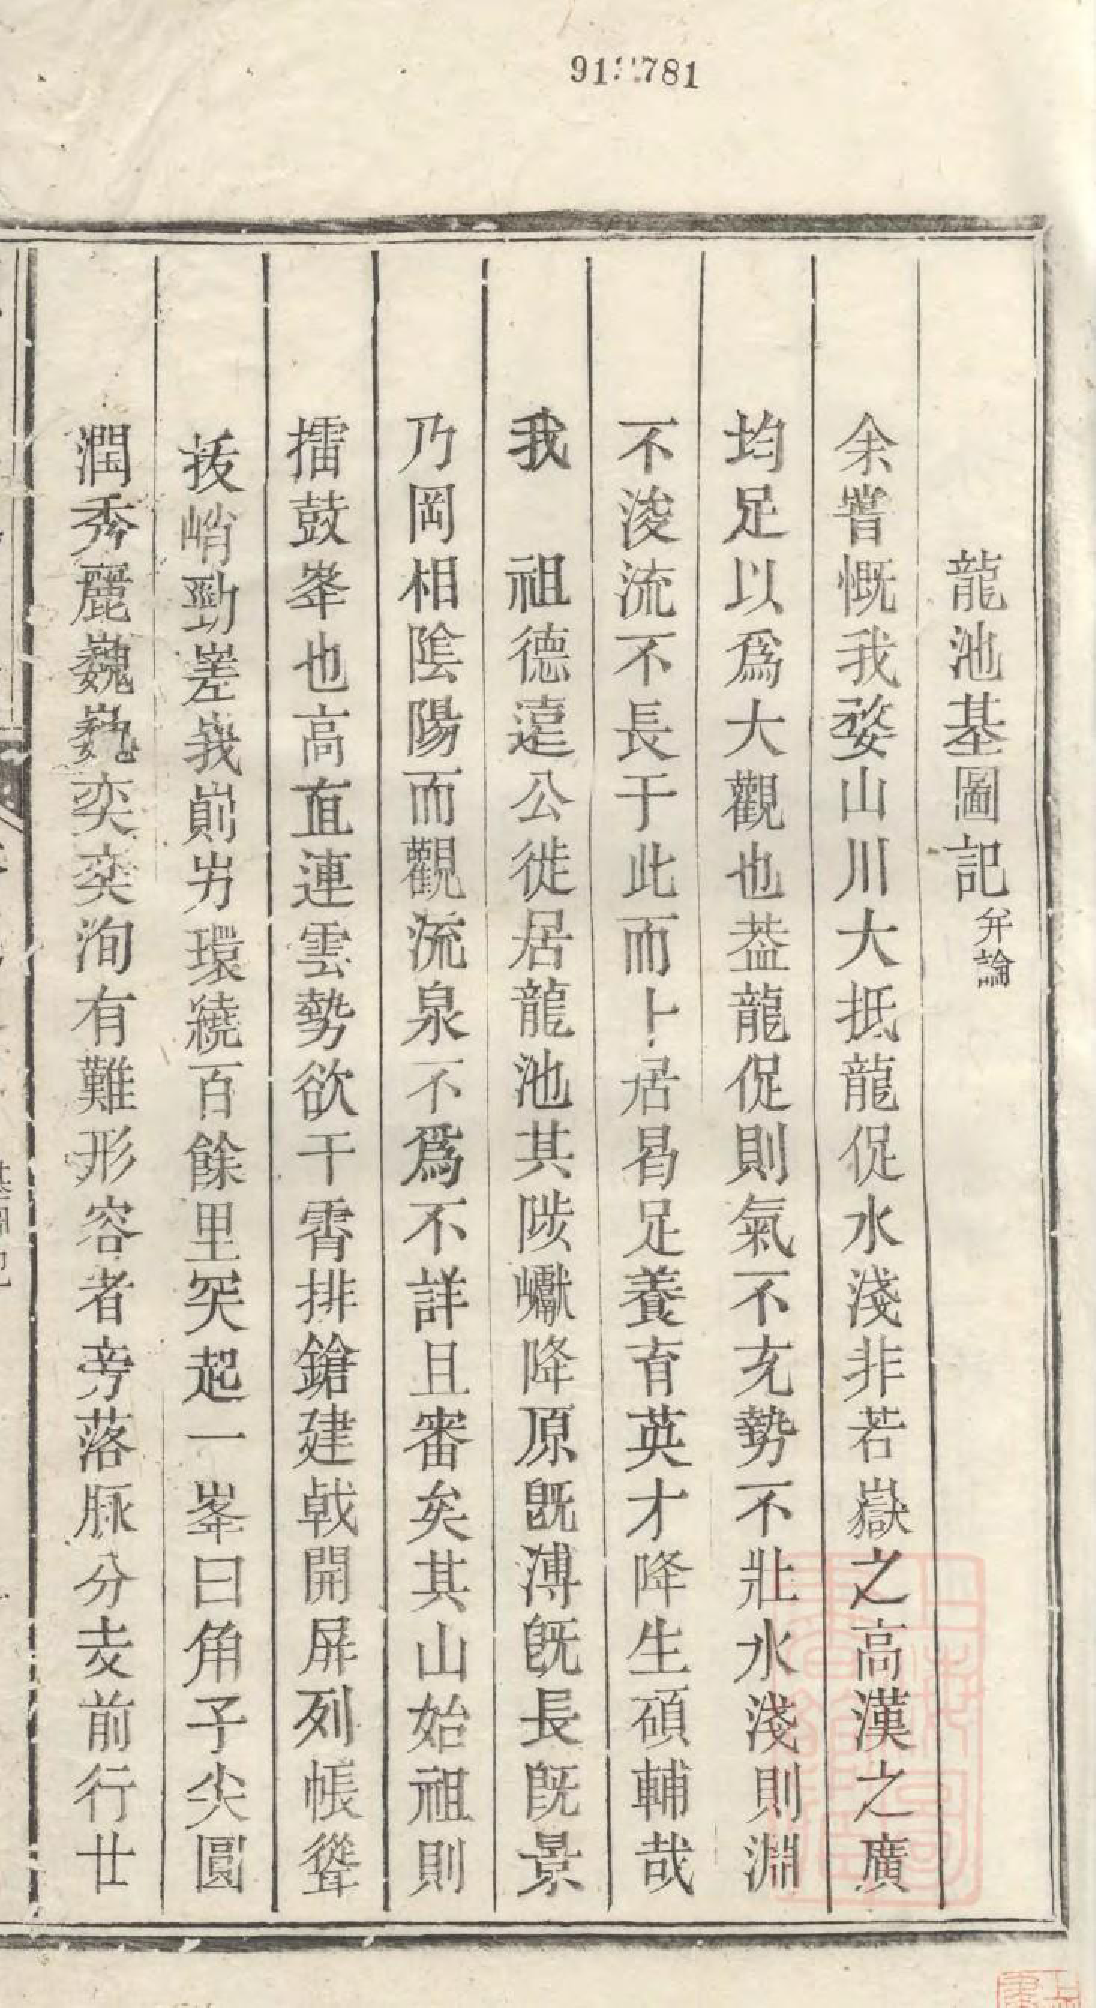 龍池基圖記弁論
余嘗慨我婺山川大抵龍促水淺非若嶽之高漢之廣
均足以爲大觀也葢龍促則氣不充勢不壯水淺則淵
不浚流不長于此而卜居曷足養育英才降生碩輔哉
我　祖德遠公徙居龍池其陟巘降原既溥既長既景
乃岡相陰陽而觀流泉不爲不詳且審矣其山始祖則
擂鼓峯也高直連雲勢欲干霄排鎗建戟開屏列帳聳
拔峭勁嵳峩崱屴環繞百餘里突起一峯曰角子尖圓
潤秀麗巍巍奕奕洵有難形容者旁落脉分支前行廿